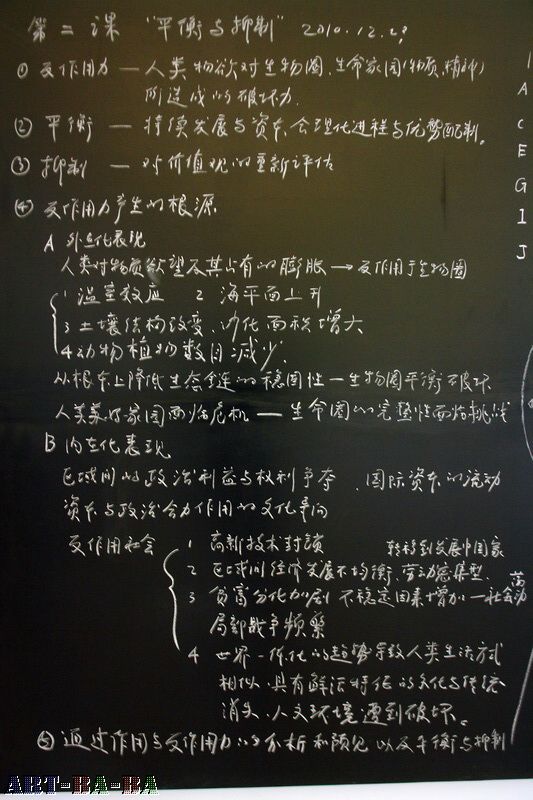 第二课 "平衡与抑制" 2010.12.2?
① 反作用力 — 人类物欲对生物圈、生命家园(物质、精神)
所造成的破坏力.
② 平衡 — 持续发展与资本合理化进程与优势配制。
③ 抑制 — 对价值观的重新评估
④ 反作用力产生的根源
A 外在化表现
人类对物质欲望及其占有的膨胀 → 反作用于生物圈
1 温室效应 2 海平面上升
3 土壤结构改变、沙化面积增大
4 动物植物数目减少.
从根本上降低生态食连的稳固性 — 生物圈平衡破坏
人类美好家园面临危机 — 生命圈的完整性面临挑战
B 内在化表现
区域间的政治利益与权利争夺 、国际资本的流动
资本与政治合力作用的文化导向
反作用社会
1 高新技术封锁 转移到发展中国家
2 区域间经济发展不均衡、劳动密集型、
3 贫富分化加剧 不稳定因素增加 — 社会动荡
局部战争频繁
4 世界一体化的趋势导致人类生活方式
相似、具有鲜活特征的文化与传统
消失、人文环境遭到破坏。
⑤ 通过作用与反作用力的分析和预见以及平衡与抑制
A
C
E
G
I
J
ART-BA-BA